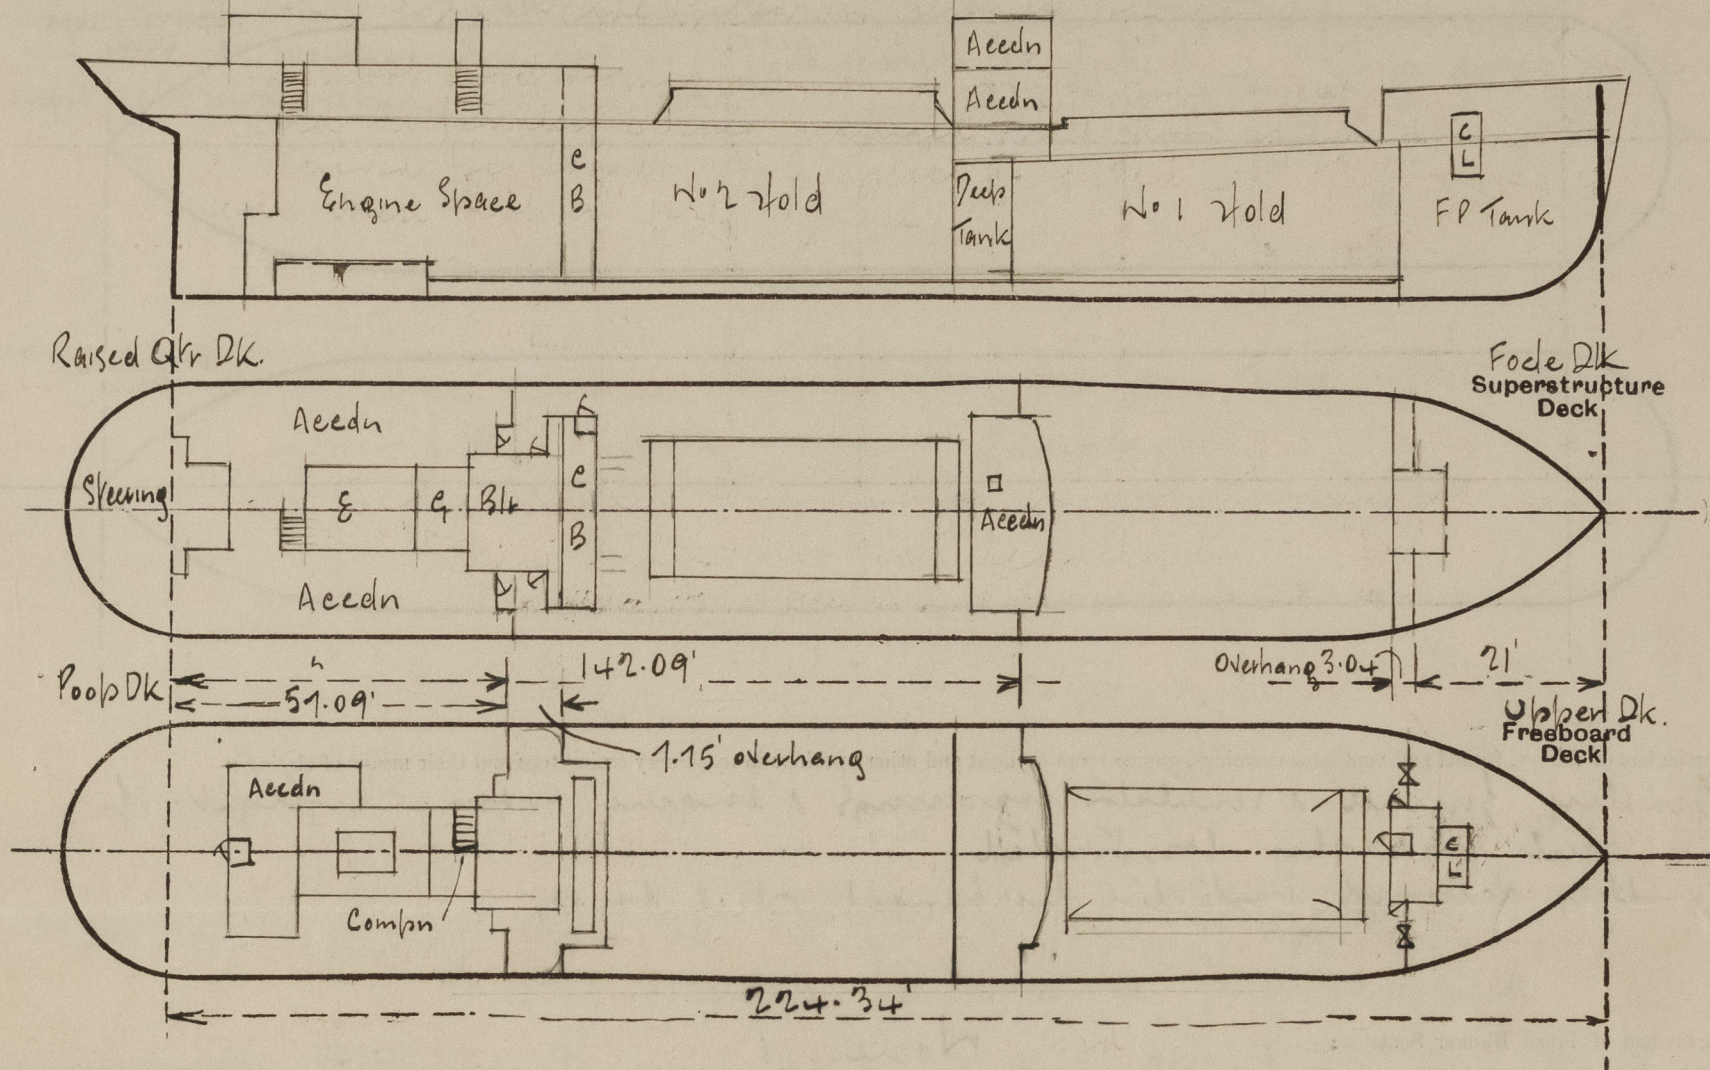 Accdn
Accdn
Engine Space
C
B
No 2 Hold
Deep
Tank
No 1 Hold
C
L
FP Tank
Raised Qtr Dk.
Focle Dk
Superstructure
Deck
Accdn
Steering
E
G
Blr
C
B
Accdn
Accdn
142.09'
Overhang 3.04
21'
Poop Dk
Upper Dk.
Freeboard
Deck
1.15' overhang
Accdn
C
L
Compn
224.34'